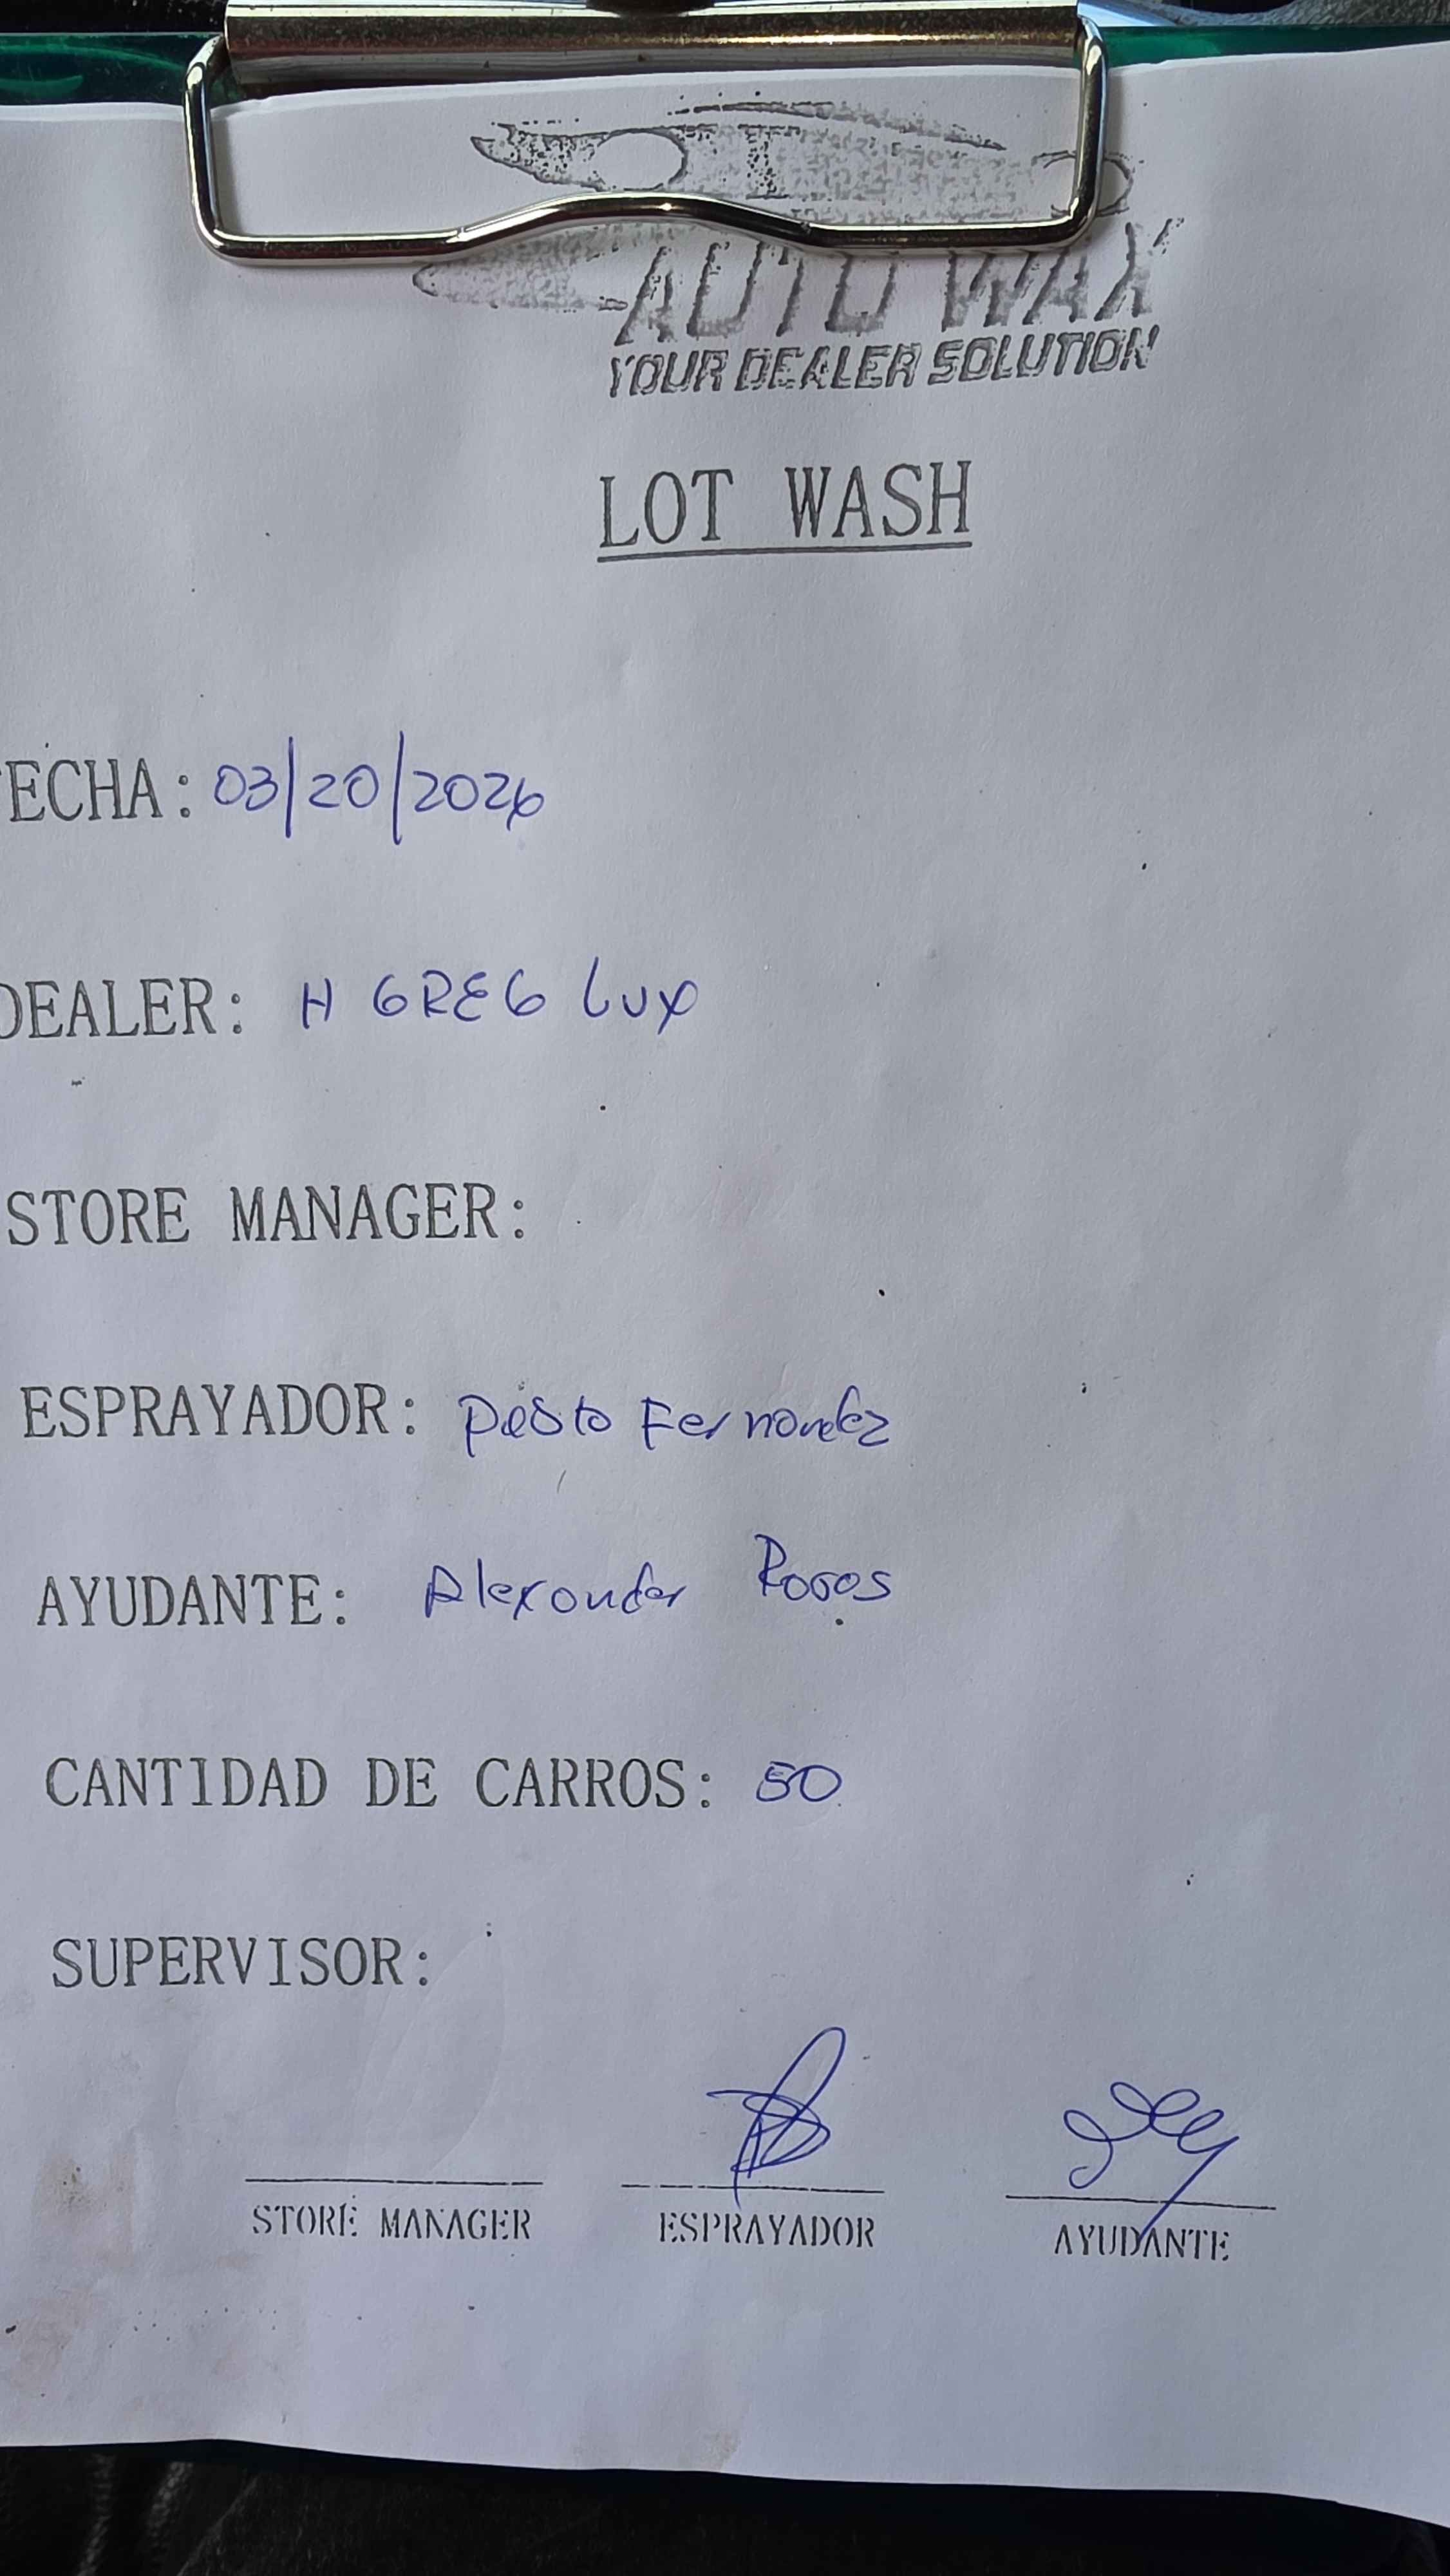 AUTO WAX
YOUR DEALER SOLUTION
LOT WASH
ECHA: 03/20/2026
DEALER: H GREG LUX
STORE MANAGER:
ESPRAYADOR: Fernandez
AYUDANTE: Alexander
CANTIDAD DE CARROS: 50
SUPERVISOR:
STORE MANAGER ESPRAYADOR AYUDANTE